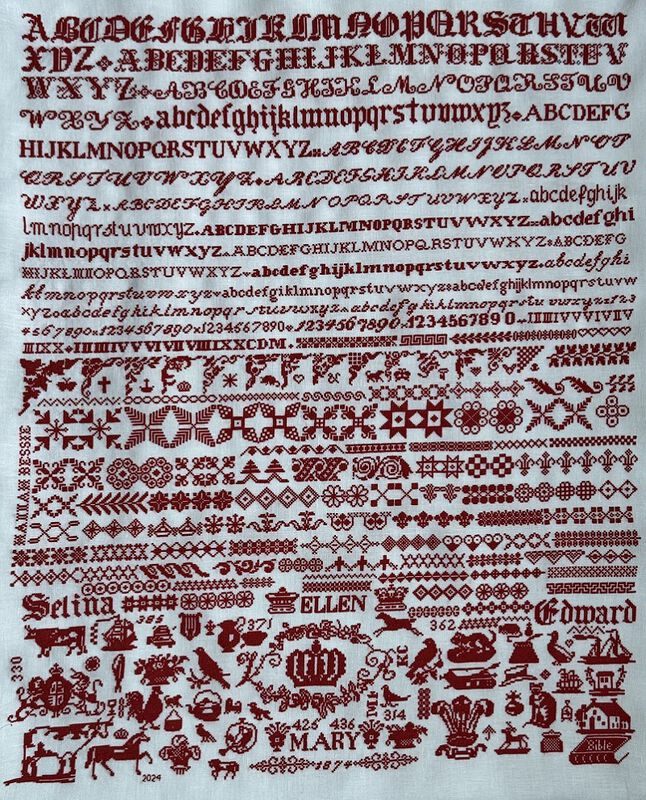 ABCDEFGHIKLMNOPQRSTUVW
XYZ ABCDEFGHIJKLMNOPQRSTUV
WXYZ ABCDEFGHIJKLMNOPQRSTUV
WXYZ abcdefghijklmnopqrstuvwxyz ABCDEFG
HIJKLMNOPQRSTUVWXYZ ABCDEFGHIJKLMNOP
QRSTUVWXYZ ABCDEFGHIJKLMNOPQRSTUV
WXYZ ABCDEFGHIJKLMNOPQRSTUVWXYZ abcdefghijk
lmnopqrstuvwxyz ABCDEFGHIJKLMNOPQRSTUVWXYZ abcdefghi
jklmnopqrstuvwxyz ABCDEFGHIJKLMNOPQRSTUVWXYZ ABCDEFG
HIJKLMNOPQRSTUVWXYZ abcdefghijklmnopqrstuvwxyz abcdefghi
klmnopqrstuvwxyz abcdefghijklmnopqrstuvwxyz abcdefghijklmnopqrstuvw
xyz abcdefghijklmnopqrstuvwxyz abcdefghijklmnopqrstu vwxyz 123
4567890 1234567890 1234567890 1234567890 1234567890 I II III IV V VI VII V
III IX X I II III IV V VI VII VIII IX X C D M
HANNAH BESSIE
Selina ELLEN Edward
385 371 362
330
KC
314
426 436
MARY
1874
Bible
2024